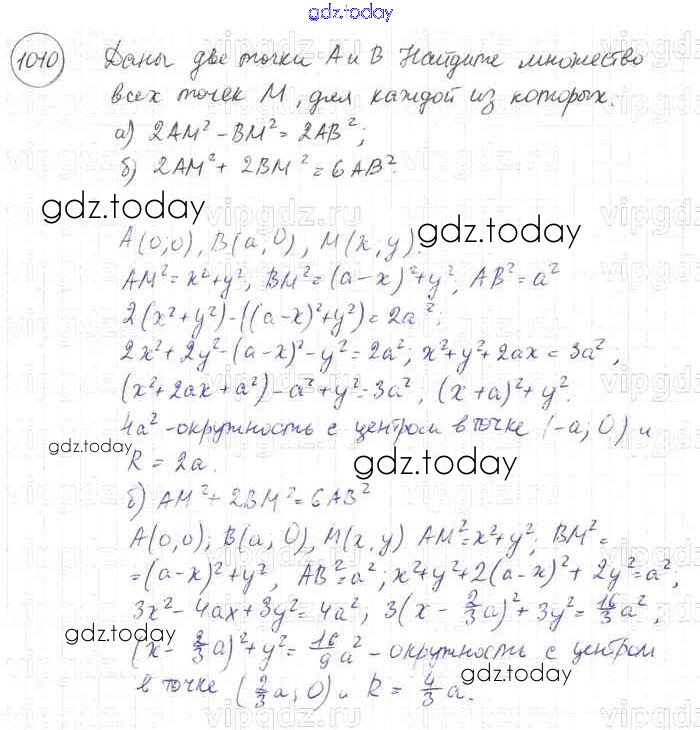 gdz.today
1010 Даны две точки A и B Найдите множество
всех точек M, для каждой из которых.
а) 2AM² - BM² = 2AB²;
б) 2AM² + 2BM² = 6AB².
gdz.today
gdz.today
A(0;0), B(a;0), M(x;y).
AM² = x²+y², BM² = (a-x)²+y², AB² = a²
2(x²+y²)-((a-x)²+y²) = 2a²;
2x²+2y²-(a-x)²-y² = 2a²; x²+y²+2ax = 3a²;
(x²+2ax+a²)-a²+y² = 3a², (x+a)²+y².
4a² - окружность с центром в точке (-a; 0) и
R = 2a.
gdz.today
gdz.today
б) AM²+2BM² = 6AB²
A(0,0); B(a; 0), M(x,y) AM² = x²+y²; BM² =
= (a-x)²+y², AB² = a²; x²+y²+2(a-x)²+2y² = a²,
3x²-4ax+3y² = 4a²; 3(x-2/3a)²+3y² = 16/3a²,
(x-2/3a)²+y² = 16/9a² - окружность с центром
в точке (2/3a; 0) и R = 4/3a.
gdz.today
gdz.today